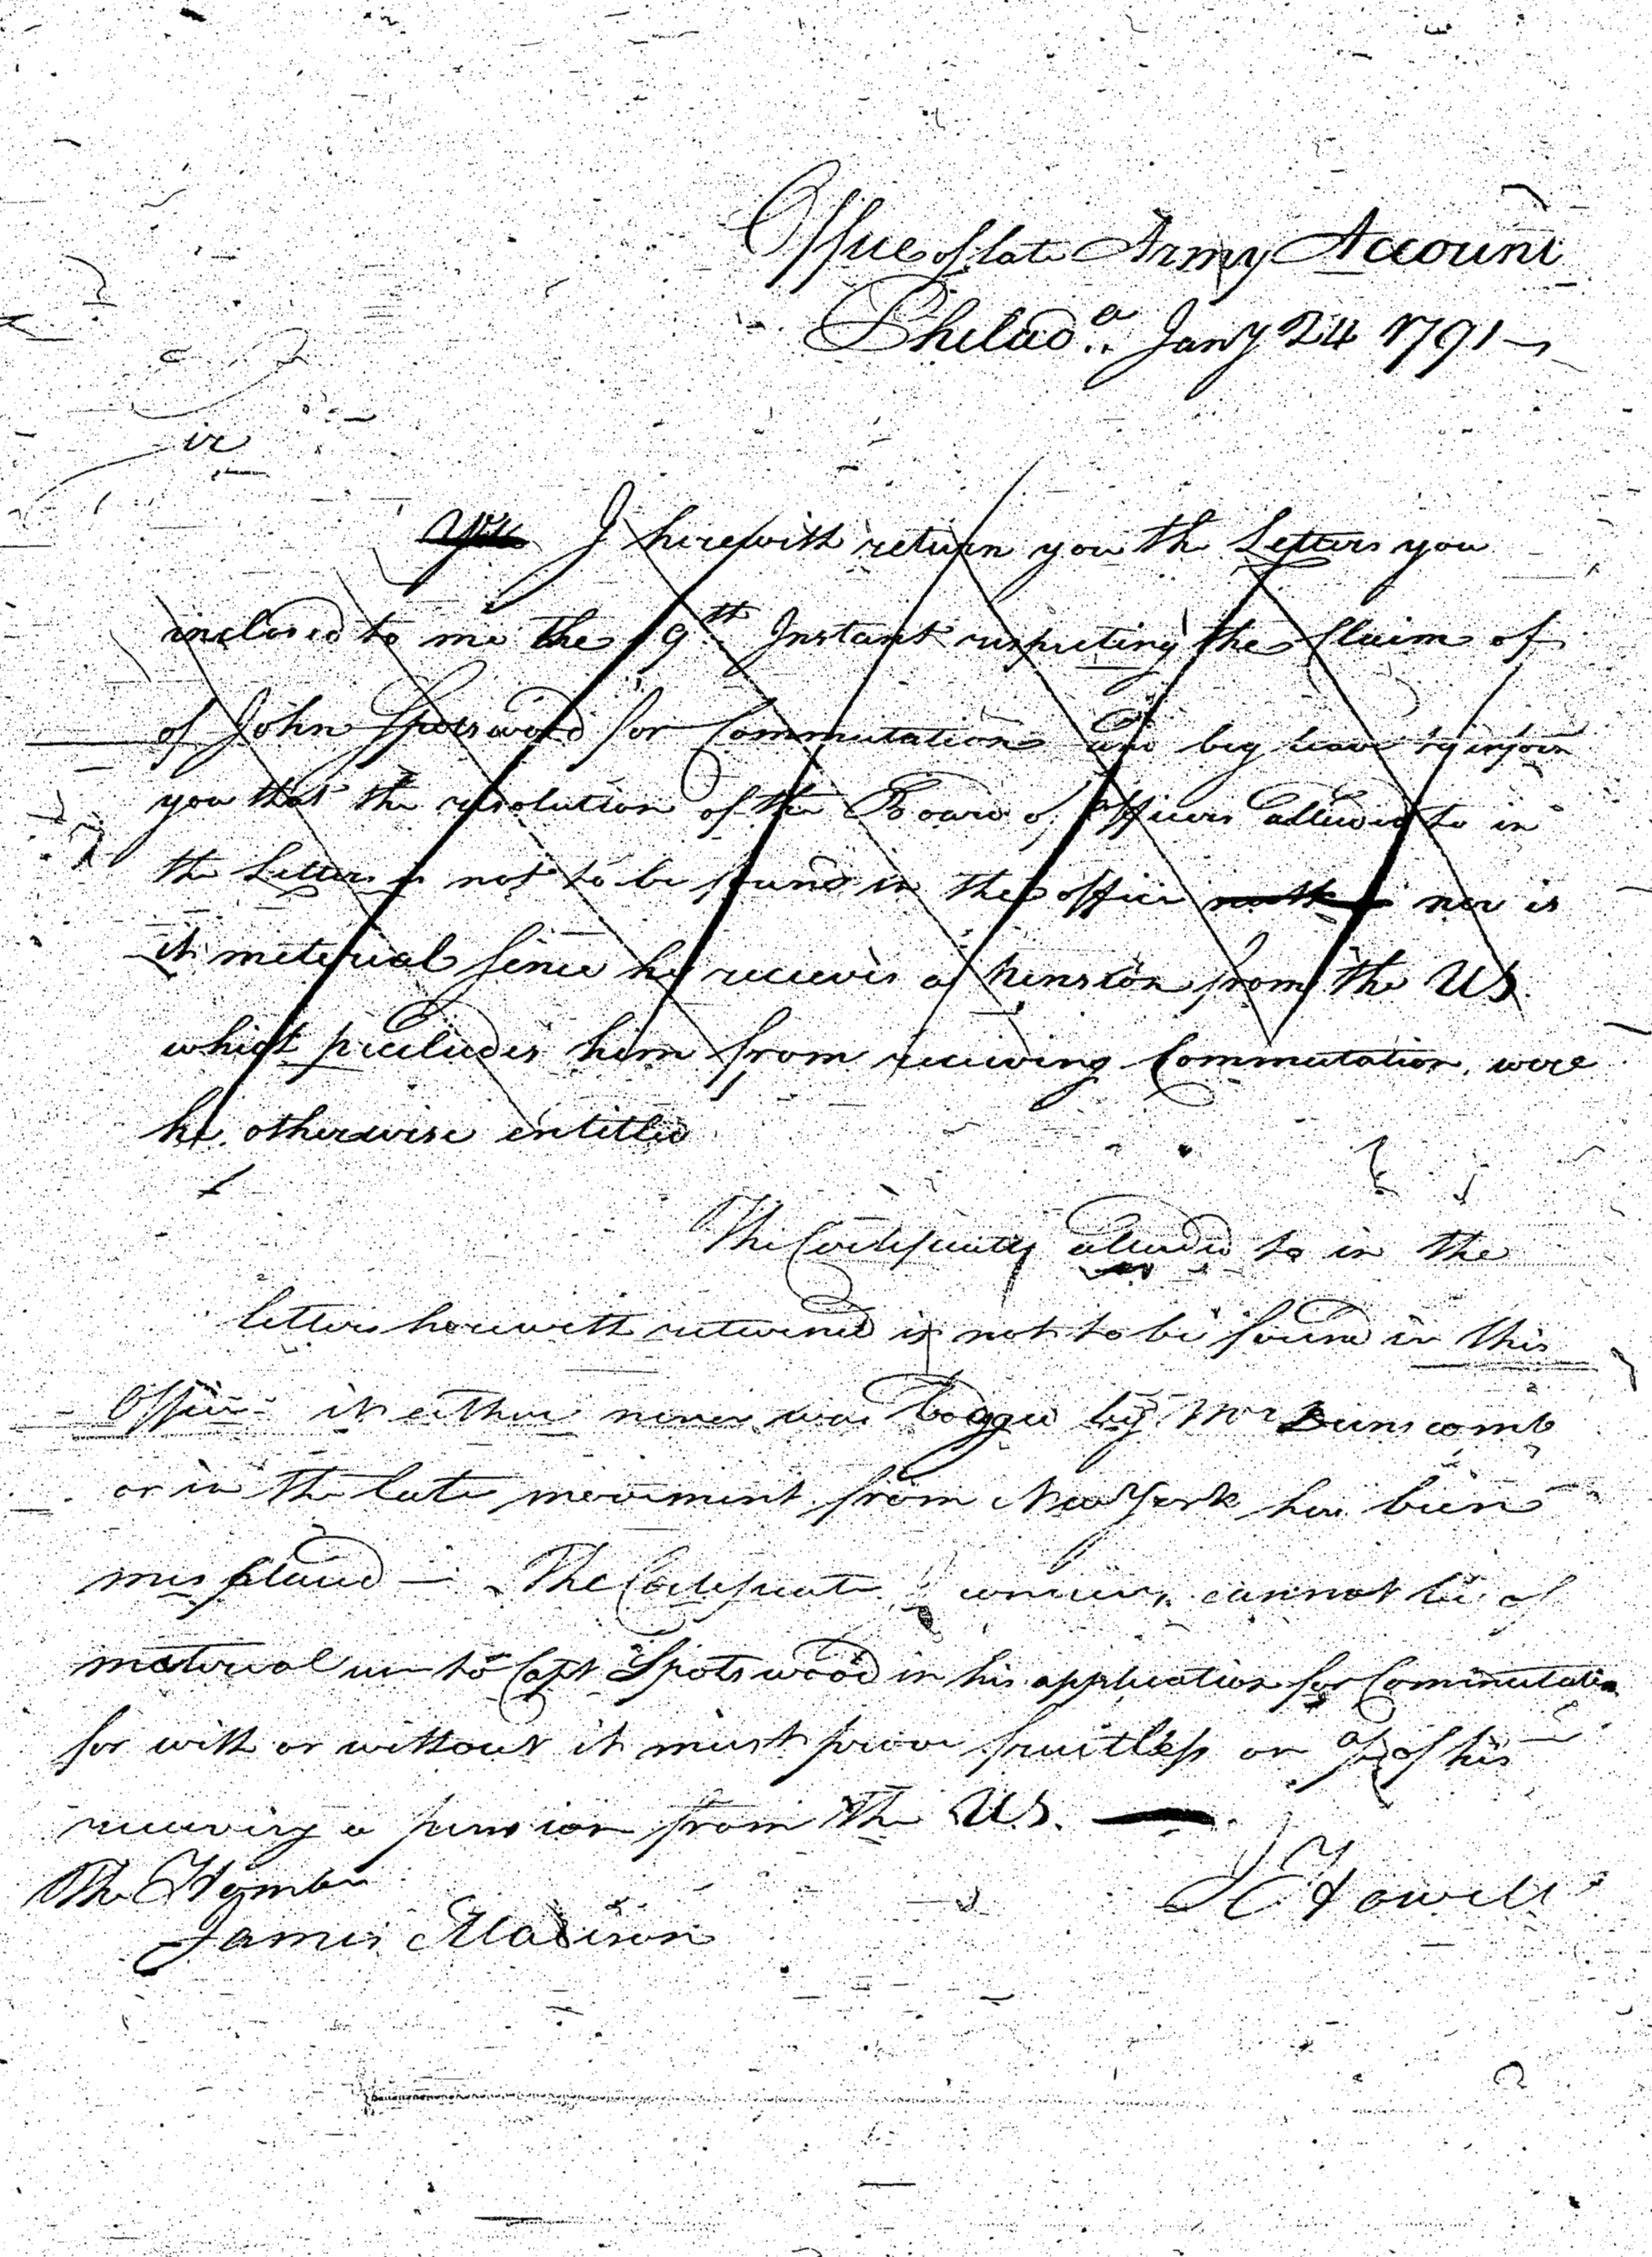 Office of late Army Account
Philad.ª Jany 24 1791
Sir
I herewith return you the Letters you
inclosed to me the 19th Instant respecting the Claim of
of John Spotswood for Commutation and beg leave to inform
you that the resolution of the Board of Officers alluded to in
the Letters is not to be found in the office nor is
it meterial since he receives a pension from the US.
which precludes him from receiving Commutation, were
he otherwise entitled
The Certificate alluded to in the
letters herewith returned is not to be found in this
Office it either never was lodged by Mr Dunscomb
or in the late movement from New York has been
misplaced — The Certificate cannot be of
material use to Capt Spotswood in his application for Commutation
for with or without it must prove fruitless on of his
receiving a pension from the U.S.
The Honble
J Howell
James Madison